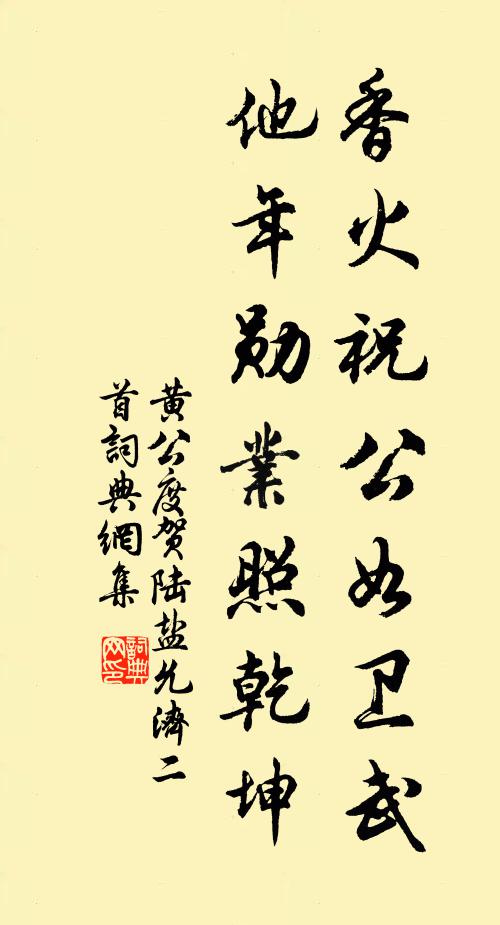 香火祝公如卫武
他年勋業照乾坤
黄公度贺陆盐允濟二
首詞典網集
詞典
网印